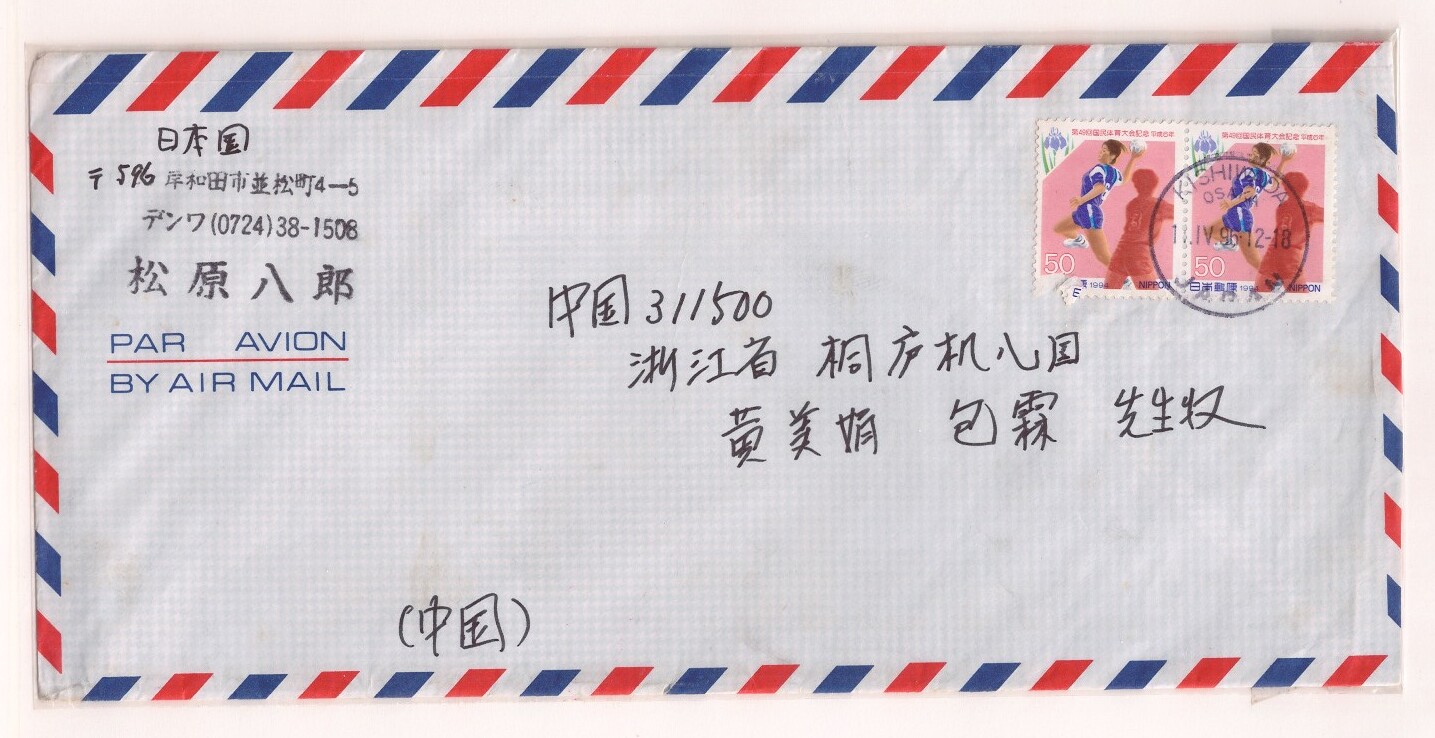 日本国
〒596 岸和田市並松町4-5
デンワ(0724)38-1508
松原八郎
PAR AVION
BY AIR MAIL
第49回国民体育大会記念 平成6年
50
1994 NIPPON
第49回国民体育大会記念 平成6年
50
日本郵便 1994 NIPPON
KISHIWADA
OSAKA
11.IV.96.12-18
JAPAN
中国 311500
浙江省 桐庐机八国
黄美娟 包霖 先生收
(中国)